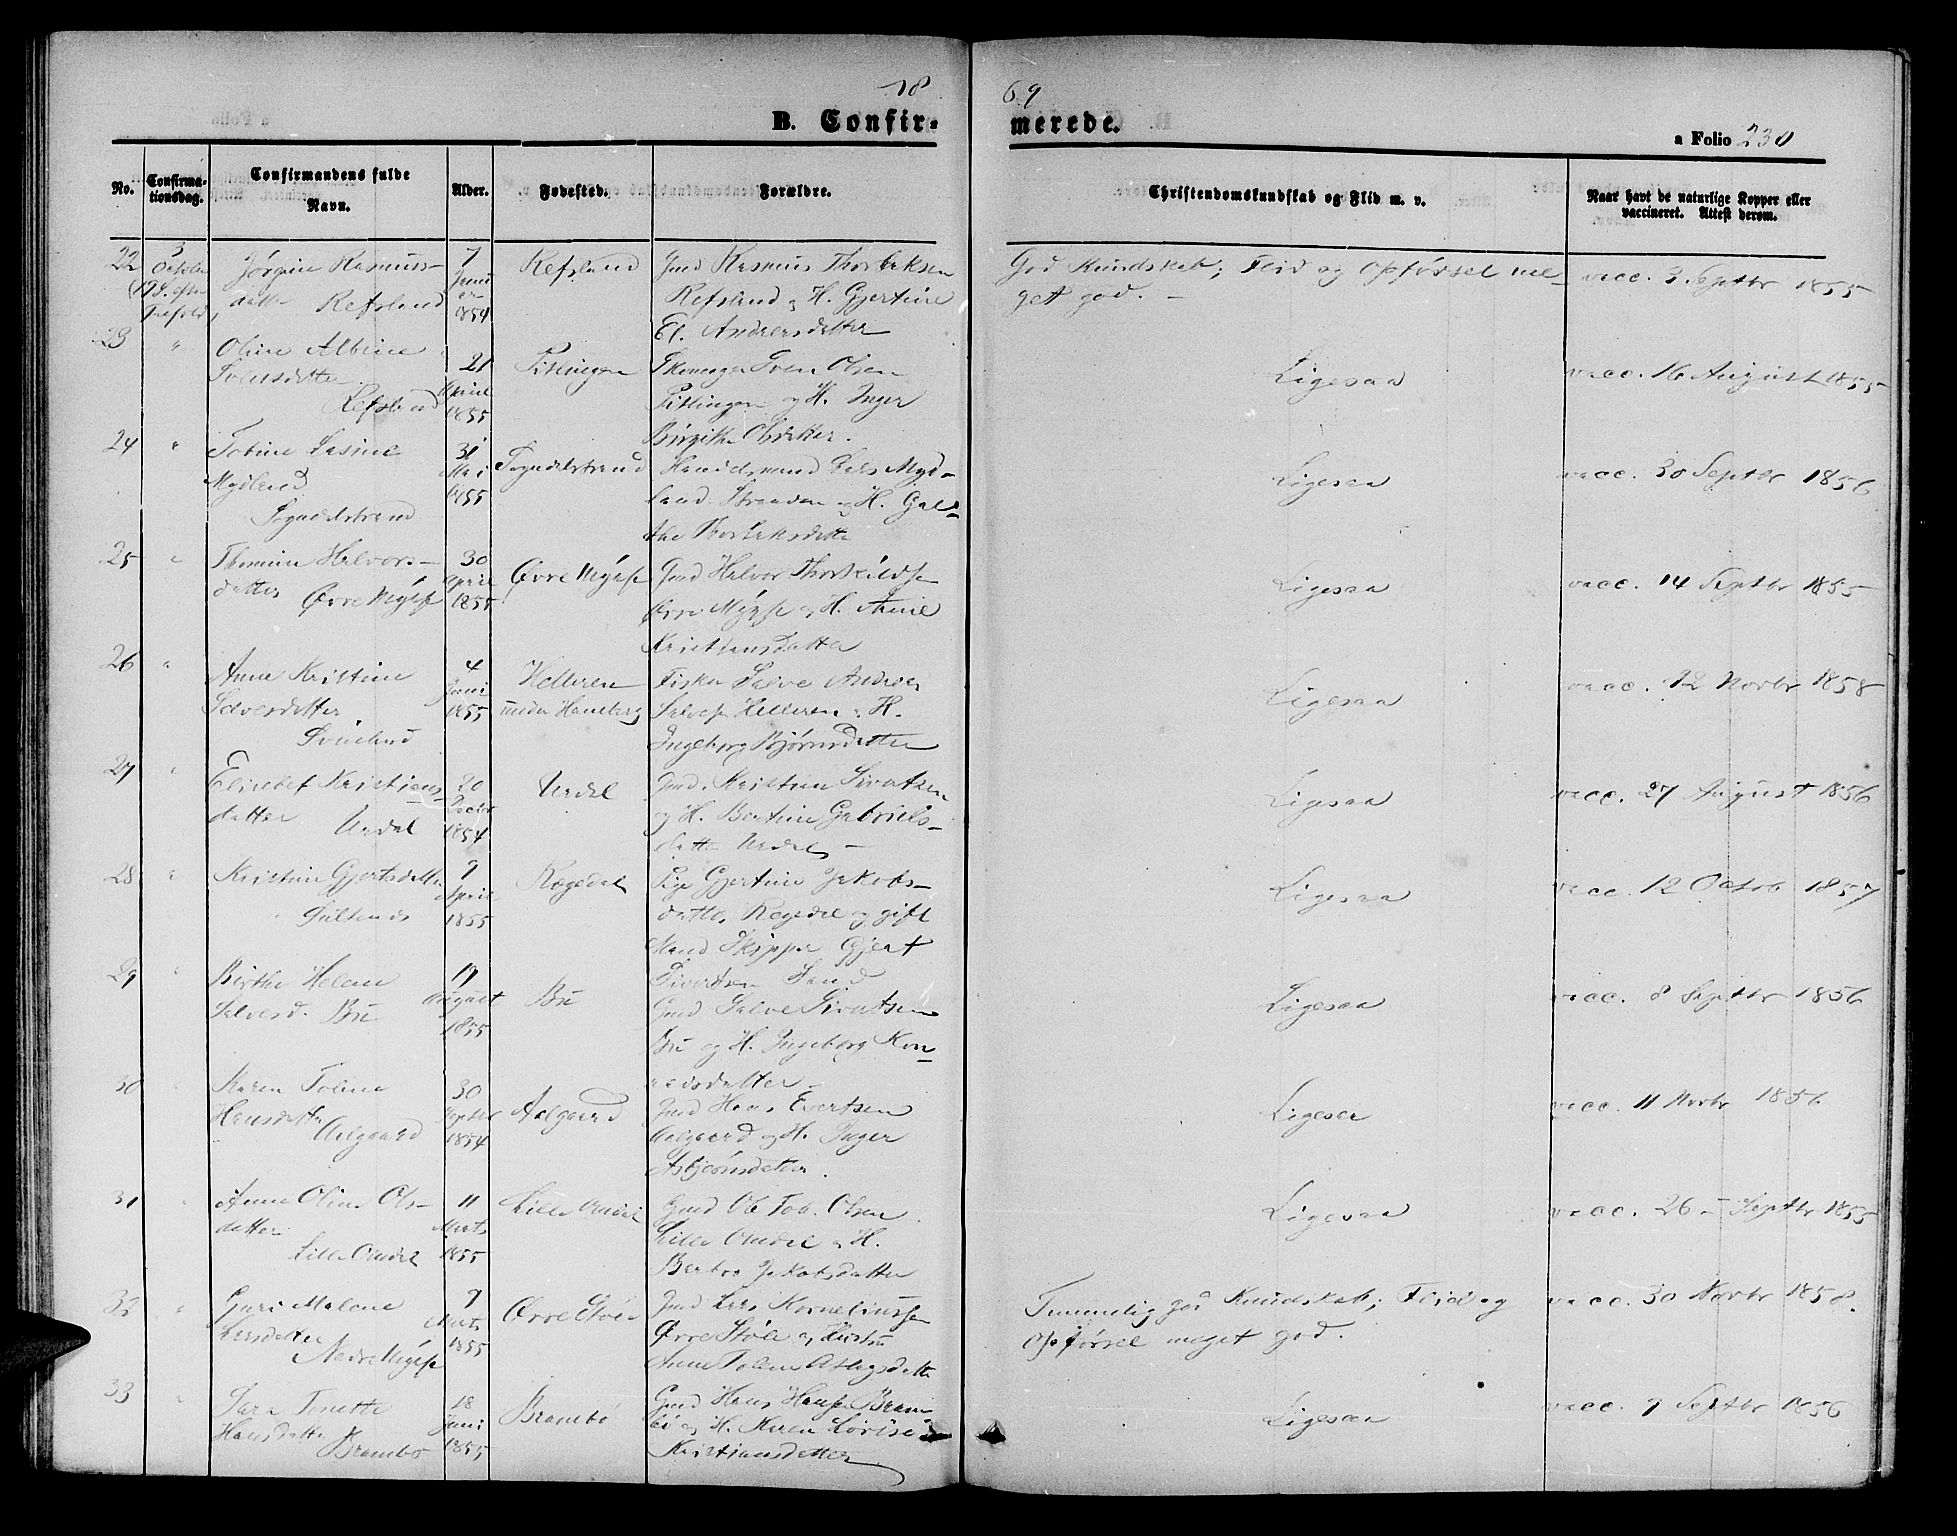 18 69
B. Confir- merede.
a Folio 230
No.
Confirma-
tionsdag.
Confirmandens fulde
Navn.
Alder.
Fødested.
Forældre.
Christendomskundskab og Flid m. v.
Naar havt de naturlige Kopper eller
vaccineret. Attest derom.
22
3
Jørgine Rasmus-
datter Refsland
7
1854
Refsland
Gmd Rasmus Thorlaksen
Refsland og H. Gjertine
El. Andreasdatter
God Kundskab; Flid og Opførsel me-
get god. -
vacc. 3 Septbr 1855
23
"
Oline Albine
Svensdatter
Refsland
21
April
1855
Pitlingen
Sven Olsen
Pitlingen og H. Inger
Birgithe Olsdatter.
Ligesaa
vacc. 16 August 1855
24
"
Tobine Lasine
Mydland
Sogndalstrand
31
Mai
1855
Sogndalstrand
Handelsmand Lars Myd-
land Stranden og H. Gal-
the Thorlaksdatter
Ligesaa
vacc. 30 Septbr 1856
25
"
Thomine Halvors-
datter Øvre Mysse
30
April
1855
Øvre Mysse
Gmd Halvor Thorkildsen
Øvre Mysse og H. Anne
Kristiansdatter
Ligesaa
vacc. 14 Septbr 1855
26
"
Anne Kristine
Salvesdatter
Svineland
4
Juni
1855
Helleren
under Haneberg
Fisker Salve Andreas
Salvesen Helleren og H.
Ingeborg Bjørnsdatter
Ligesaa
vacc. 12 Novbr 1858
27
"
Elisabet Kristians-
datter Urdal
20
Decbr
1854
Urdal
Gmd. Kristian Sivertsen
og H. Bertine Gabriels-
datter Urdal -
Ligesaa
vacc. 27 August 1856
28
"
Kristine Gjertsdatter
9
April
1855
Rægedal
Pige Gjertine Jakobs-
datter Rægedal og gift
Mand Skipper Gjert
Sivertsen Sand
Ligesaa
vacc. 12 Octob 1857
29
"
Birthe Helene
Salvesd. Bu
19
August
1855
Bu
Gmd Salve Sivertsen
Bu og H. Ingeborg Kon-
radsdatter -
Ligesaa
vacc. 8 Septbr 1856
30
"
Karen Toline
Hansdatter
Aalgaard
30
Septbr
1854
Aalgaard
Gmd Hans Evertsen
Aalgaard og H. Inger
Asbjørnsdatter.
Ligesaa
vacc. 11 Novbr 1856
31
"
Anne Oline Ols-
datter
Lille Omdal
11
Marts
1855
Lille Omdal
Gmd Ole Tob. Olsen
Lille Omdal og H.
Berbro Jakobsdatter
Ligesaa
vacc. 26 - Septbr 1855
32
"
Guri Malene
Larsdatter
Nedre Mysse
9
Marts
1855
Øvre Støle
Gmd Lars Korneliussen
Øvre Støle og Hustru
Anne Toline Aslagsdatter
Temmelig god Kundskab; Flid og
Opførsel meget god.
vacc. 30 Novbr 1858.
33
"
Sara Tonette
Hansdatter
Brambø
18
Juni
1855
Brambø
Gmd Hans Hansen Bram-
bø og H. Karen Lovise
Kristiansdatter
Ligesaa
vacc. 9 Septbr 1856